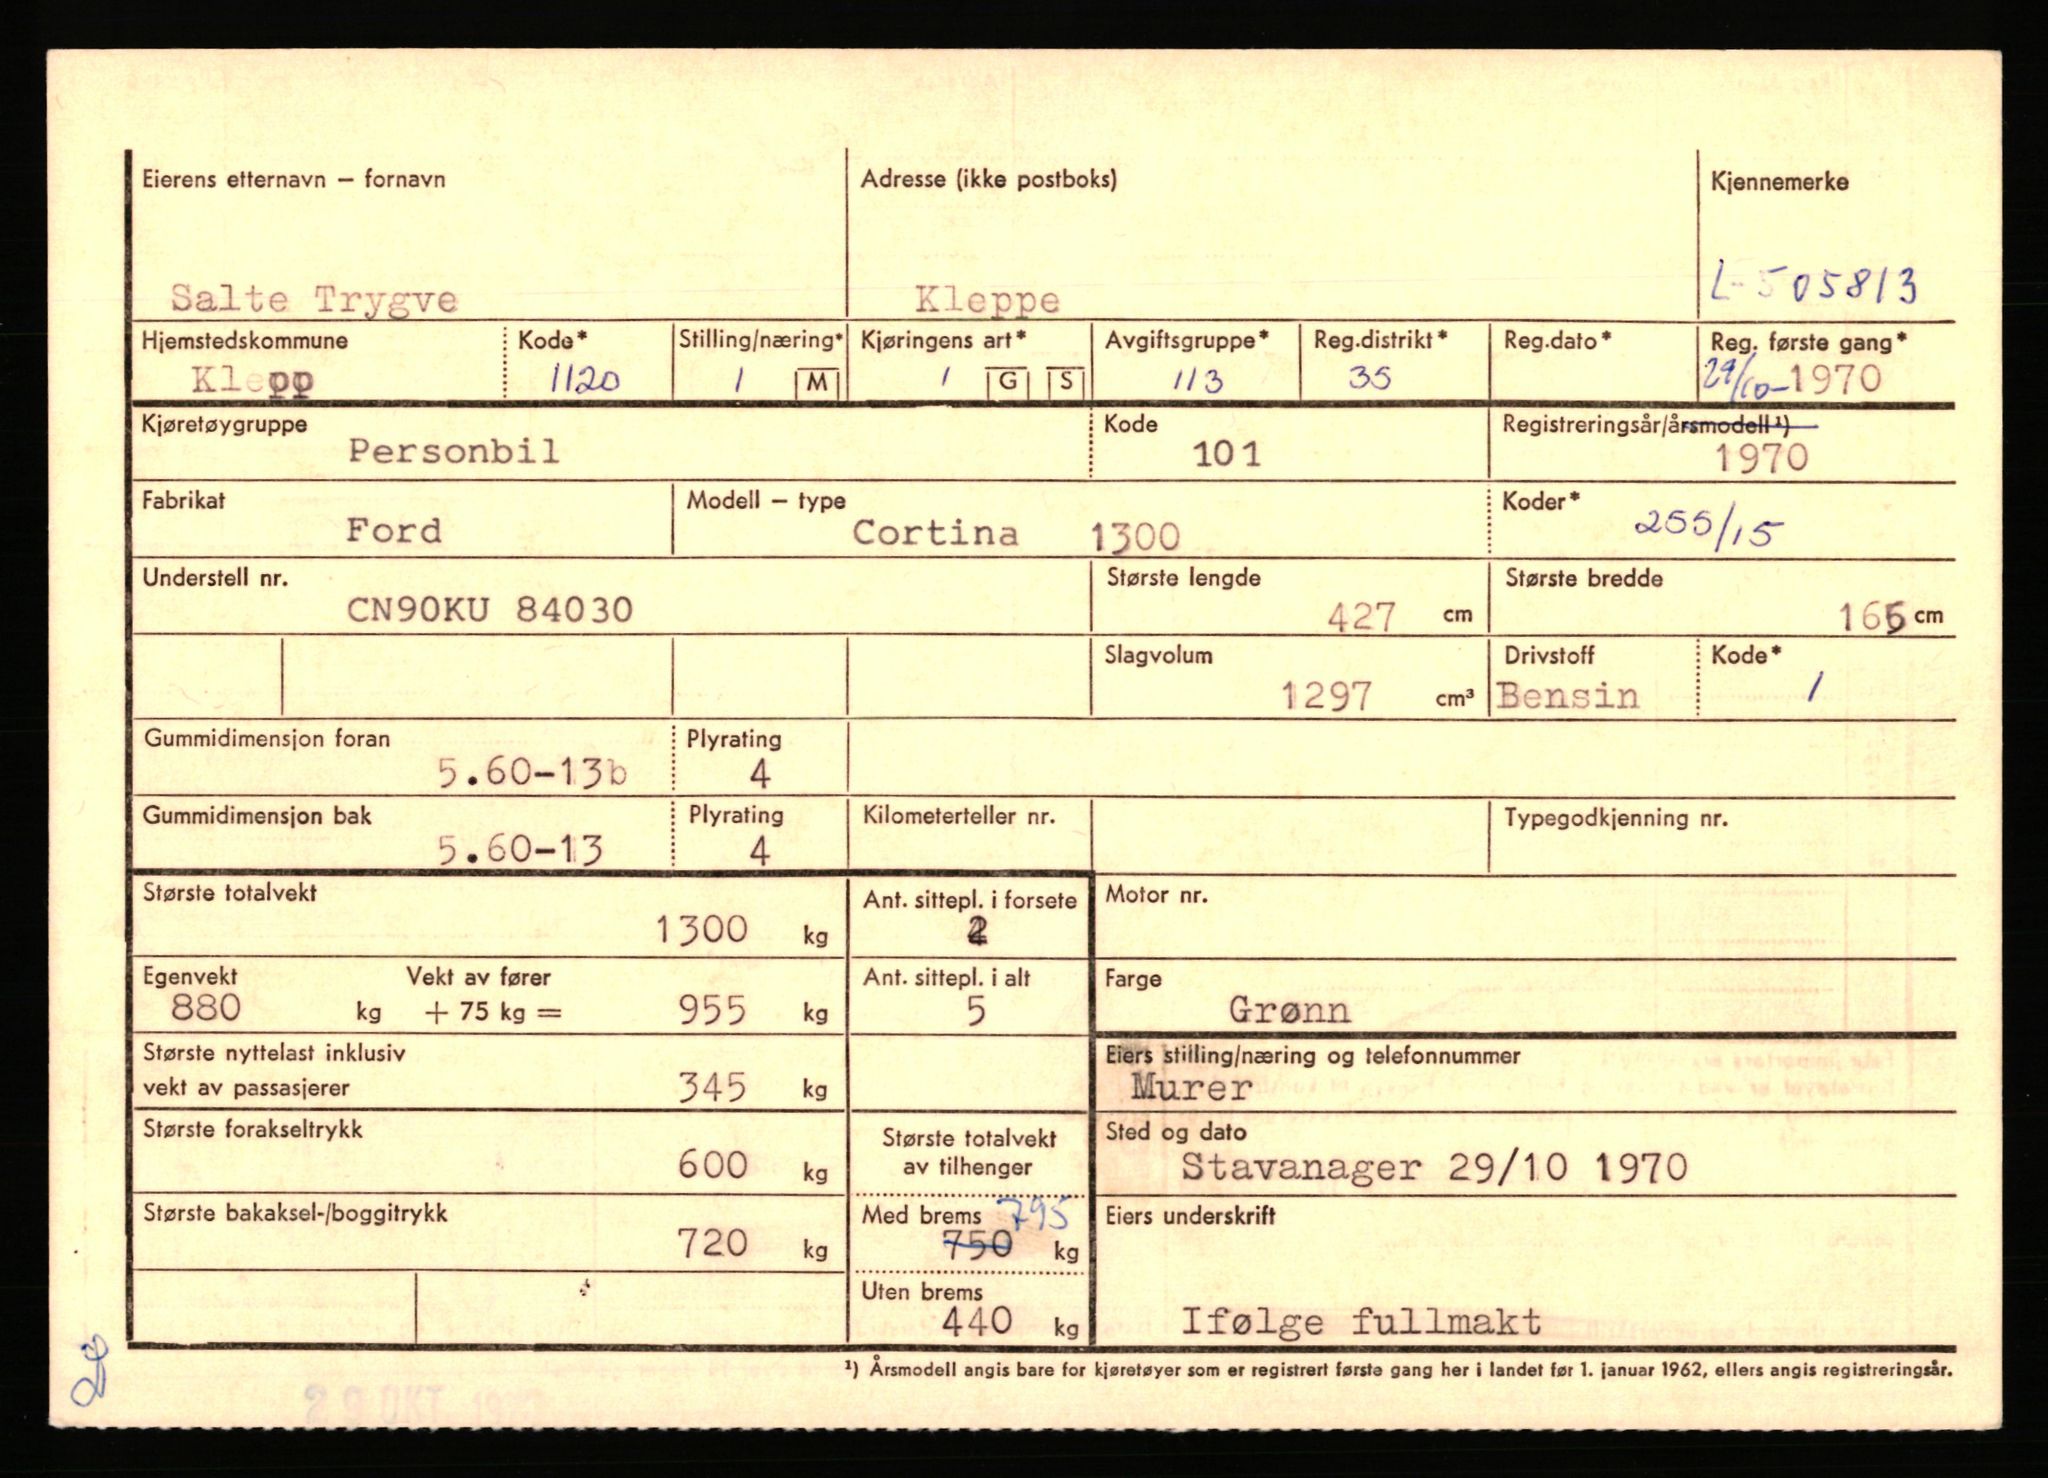 Eierens etternavn – fornavn Adresse (ikke postboks) Kjennemerke
Salte Trygve Kleppe L-505813
Hjemstedskommune Kode* Stilling/næring* Kjøringens art* Avgiftsgruppe* Reg.distrikt* Reg.dato* Reg. første gang*
Klepp 1120 1 M 1 G S 113 35 29/10-1970
Kjøretøygruppe Kode Registreringsår/årsmodell ¹)
Personbil 101 1970
Fabrikat Modell – type Koder*
Ford Cortina 1300 255/15
Understell nr. Største lengde Største bredde
CN90KU 84030 427 cm 165 cm
Slagvolum Drivstoff Kode*
1297 cm³ Bensin 1
Gummidimensjon foran Plyrating
5.60-13b 4
Gummidimensjon bak Plyrating Kilometerteller nr. Typegodkjenning nr.
5.60-13 4
Største totalvekt Ant. sittepl. i forsete Motor nr.
1300 kg 2
Egenvekt Vekt av fører Ant. sittepl. i alt Farge
880 kg + 75 kg = 955 kg 5 Grønn
Største nyttelast inklusiv Eiers stilling/næring og telefonnummer
vekt av passasjerer 345 kg Murer
Største forakseltrykk Største totalvekt Sted og dato
600 kg av tilhenger Stavanager 29/10 1970
Største bakaksel-/boggitrykk Med brems 795 Eiers underskrift
720 kg 750 kg
Uten brems
440 kg Ifølge fullmakt
¹) Årsmodell angis bare for kjøretøyer som er registrert første gang her i landet før 1. januar 1962, ellers angis registreringsår.
29 OKT